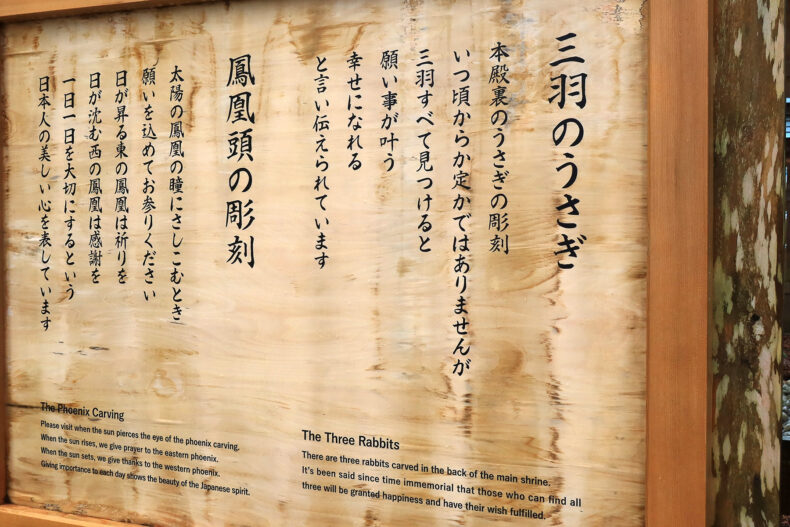 三羽のうさぎ
本殿裏のうさぎの彫刻
いつ頃からか定かではありませんが
三羽すべて見つけると
願い事が叶う
幸せになれる
と言い伝えられています
鳳凰頭の彫刻
太陽の鳳凰の瞳にさしこむとき
願いを込めてお参りください
日が昇る東の鳳凰は祈りを
日が沈む西の鳳凰は感謝を
一日一日を大切にするという
日本人の美しい心を表しています
The Phoenix Carving
Please visit when the sun pierces the eye of the phoenix carving.
When the sun rises, we give prayer to the eastern phoenix.
When the sun sets, we give thanks to the western phoenix.
Giving importance to each day shows the beauty of the Japanese spirit.
The Three Rabbits
There are three rabbits carved in the back of the main shrine.
It's been said since time immemorial that those who can find all
three will be granted happiness and have their wish fulfilled.